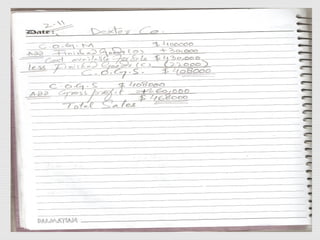 2-11
Date: Dexter Co.
C.O.G.M $400000
Add Finished Goods +30,000
Cost available for sale $430,000
less Finished Goods (22000)
C.O.G.S. $408000
C.O.G.S $408000
Add Gross profit +60,000
$468000
Total Sales